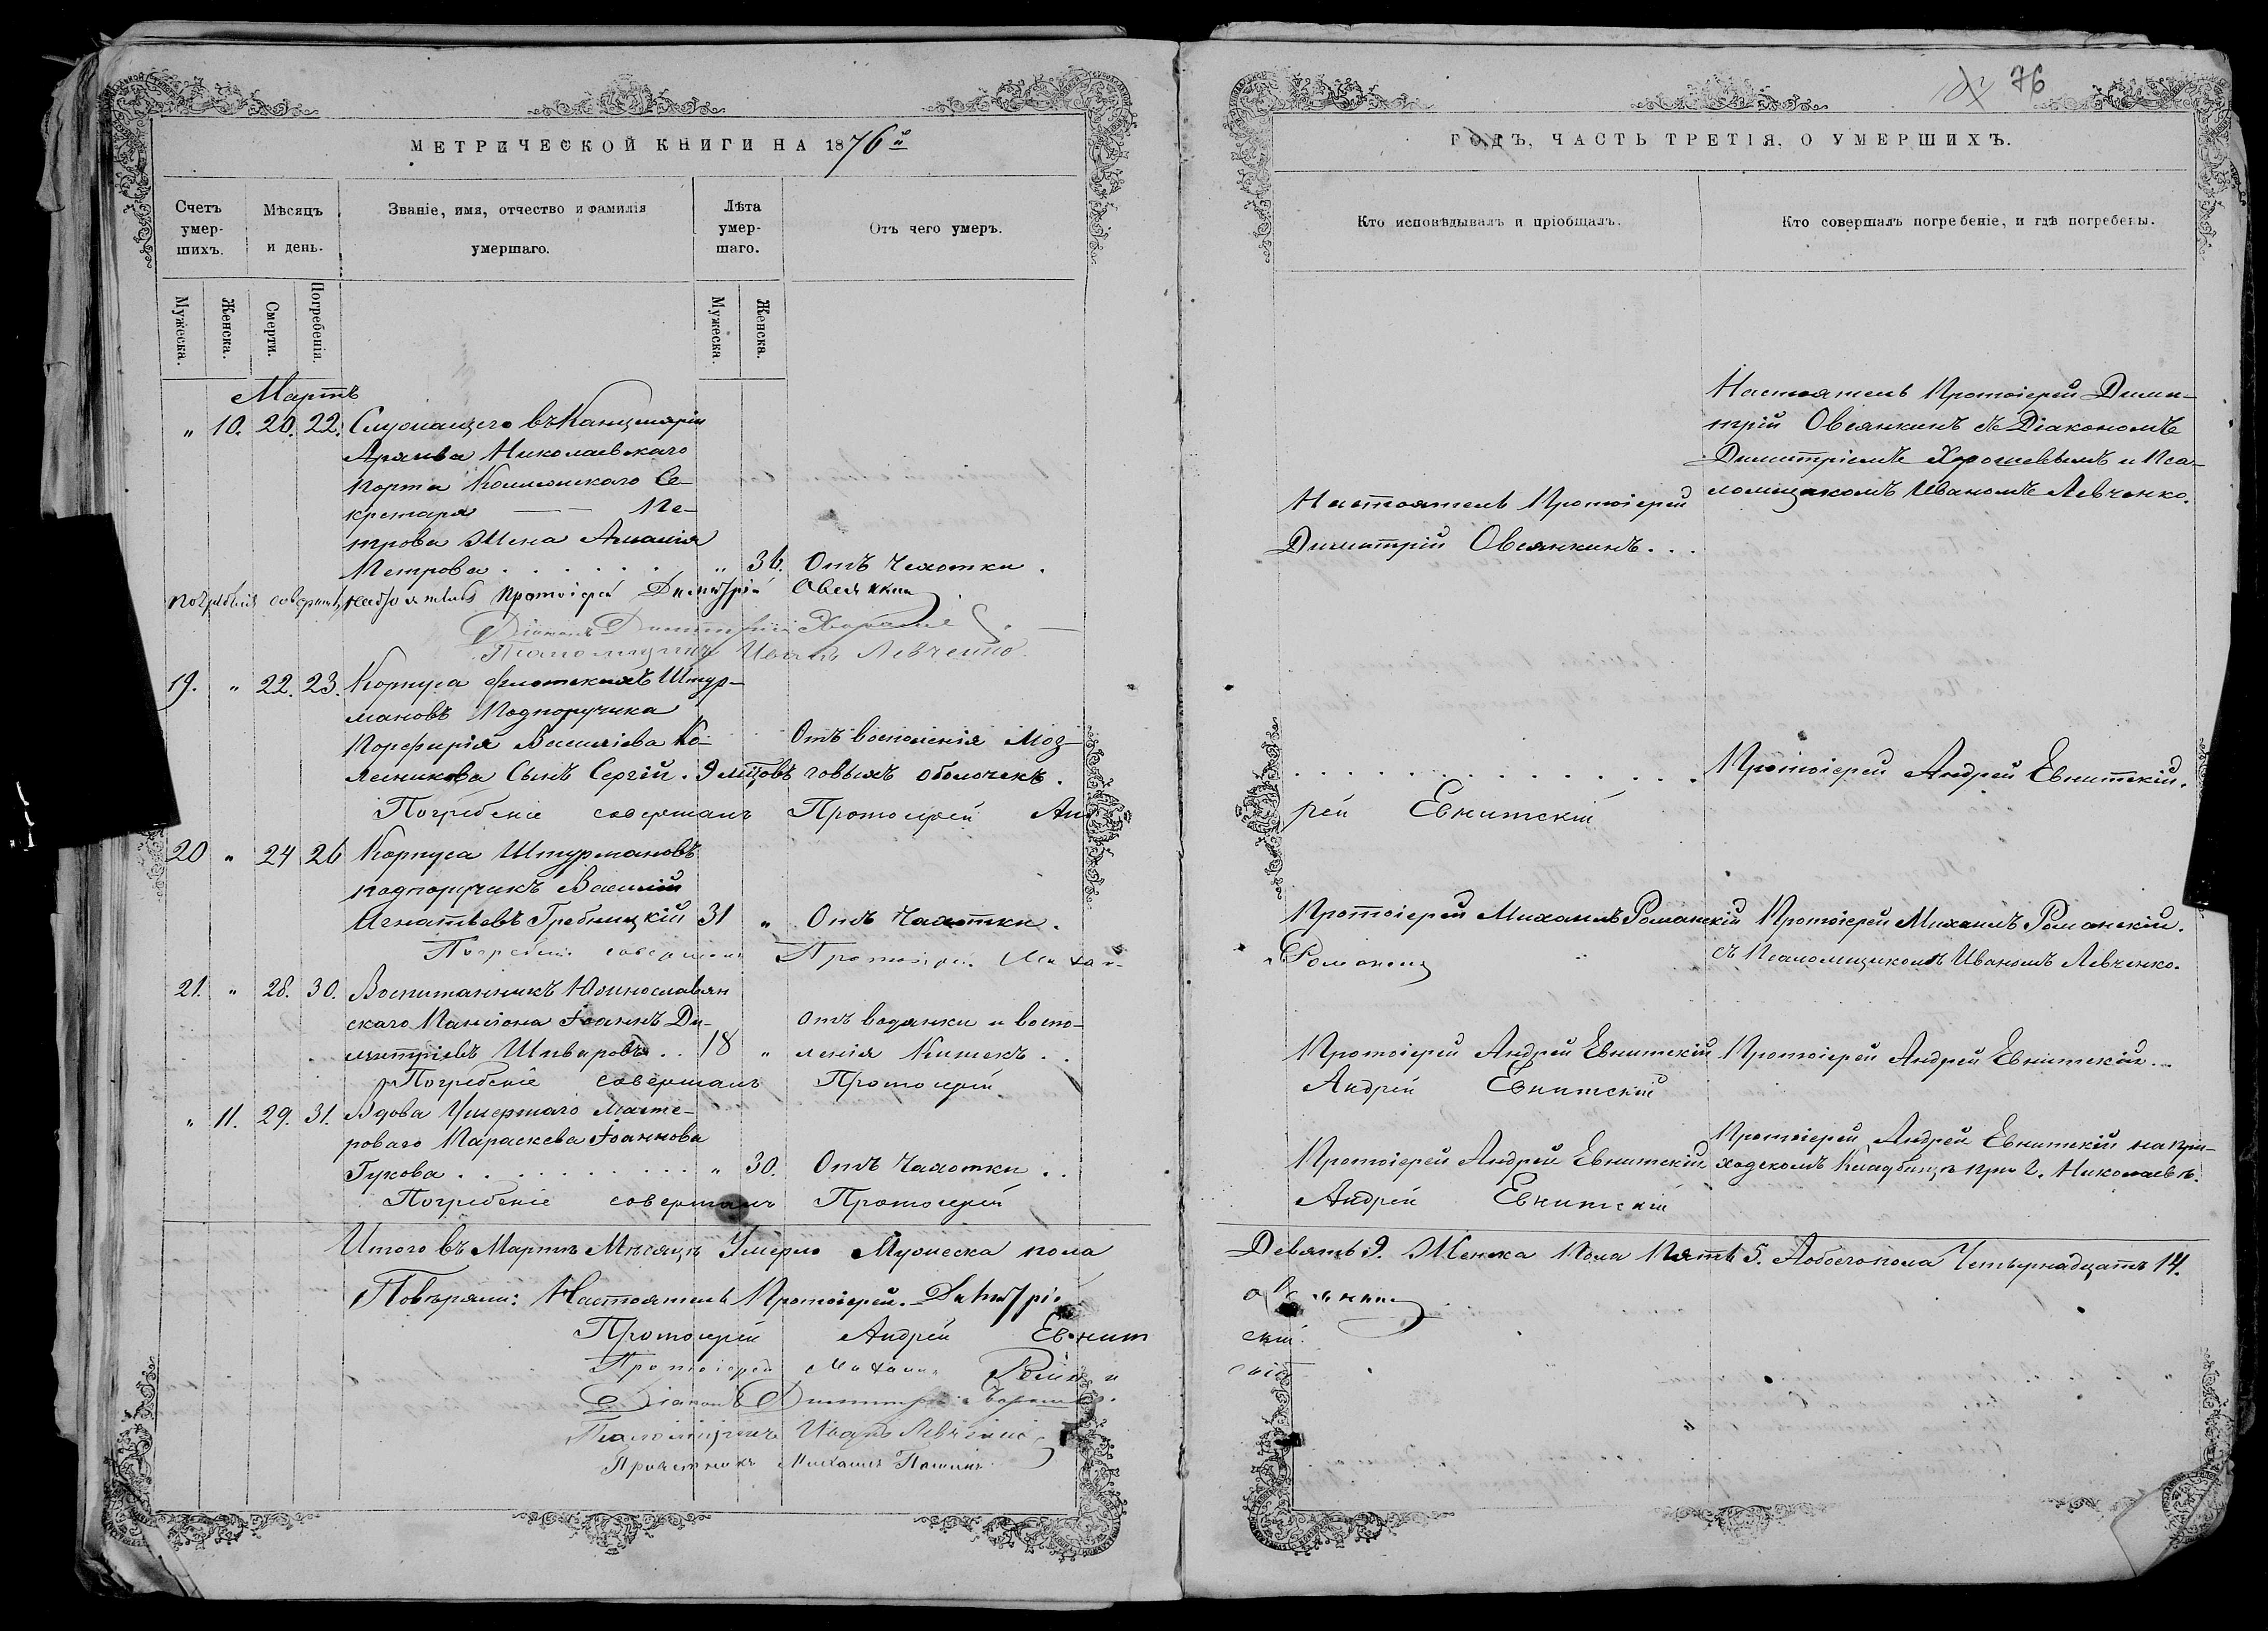 МЕТРИЧЕСКОЙ КНИГИ НА 1876й
Счетъ умер-шихъ.
Мѣсяцъ и день.
Званіе, имя, отчество и фамилія умершаго.
Лѣта умер-шаго.
Отъ чего умеръ.
Мужеска.
Женска.
Смерти.
Погребенія.
Мужеска.
Женска.
Мартъ
„ 10. 20. 22. Служащего въ Канцеляріи
Архива Николаевскаго
Порта Коллежскаго Се-
кретаря Пе-
трова Жена Амалія
Петрова . . . . . . „ 36. Отъ Чахотки .
Погребеніе совершалъ настоятель Протоіерей Димитрій Овсянкинъ
Діаконъ Димитрій
Псаломщикъ Иванъ Левченко
19. „ 22. 23. Корпуса флотскихъ Штур-
мановъ Подпоручика
Порфирія Васильева Ко- Отъ воспаленія Моз-
лесникова Сынъ Сергій . 9 мѣсцовъ говыхъ оболочекъ .
Погребеніе совершалъ Протоіерей Анд
20 „ 24 26 Корпуса Штурмановъ
подпоручикъ Василій
Игнатьевъ Гребницкій 31 „ Отъ Чахотки .
Погребеніе совершалъ Протоіерей Михаи-
21. „ 28. 30. Воспитанникъ Южнославян
скаго Пансіона Іоаннъ Ди- отъ водянки и воспа-
митріевъ Шиваровъ . . 18 „ ленія Кишекъ . .
Погребеніе совершалъ Протоіерей
„ 11. 29. 31. Вдова Умершаго Масте-
роваго Параскева Іоаннова
Гукова . . . . . . . . . . „ 30. Отъ Чахотки . .
Погребеніе совершалъ Протоіерей
Итого въ Мартѣ Мѣсяцѣ Умерло Мужеска пола
Повѣряли: Настоятель Протоіерей Димитрій
Протоіерей Андрей Евнит
Протоіерей Михаилъ
Діаконъ Димитрій
Псаломщикъ Иванъ Левченко
Причетникъ Михаилъ
76
ГОДЪ, ЧАСТЬ ТРЕТІЯ, О УМЕРШИХЪ.
Кто исповѣдывалъ и пріобщалъ.
Кто совершалъ погребеніе, и гдѣ погребены.
Настоятель Протоіерей Дими-
трій Овсянкинъ съ Діакономъ
Димитріемъ Хорошевымъ и Пса-
ломщикомъ Иваномъ Левченко.
Настоятель Протоіерей
Димитрій Овсянкинъ . . .
. . . . . . . . . . . . . . Протоіерей Андрей Евнитскій.
рей Евнитскій
Протоіерей Михаилъ Романскій Протоіерей Михаилъ Романскій.
съ Псаломщикомъ Иваномъ Левченко.
Протоіерей Андрей Евнитскій Протоіерей Андрей Евнитскій . .
Андрей Евнитскій
Протоіерей Андрей Евнитскій на при-
Протоіерей Андрей Евнитскій ходскомъ Кладбищѣ при г. Николаевѣ.
Андрей Евнитскій
Девять 9. Женска Пола Пять 5. А обоего пола Четырнадцать 14.
скій.